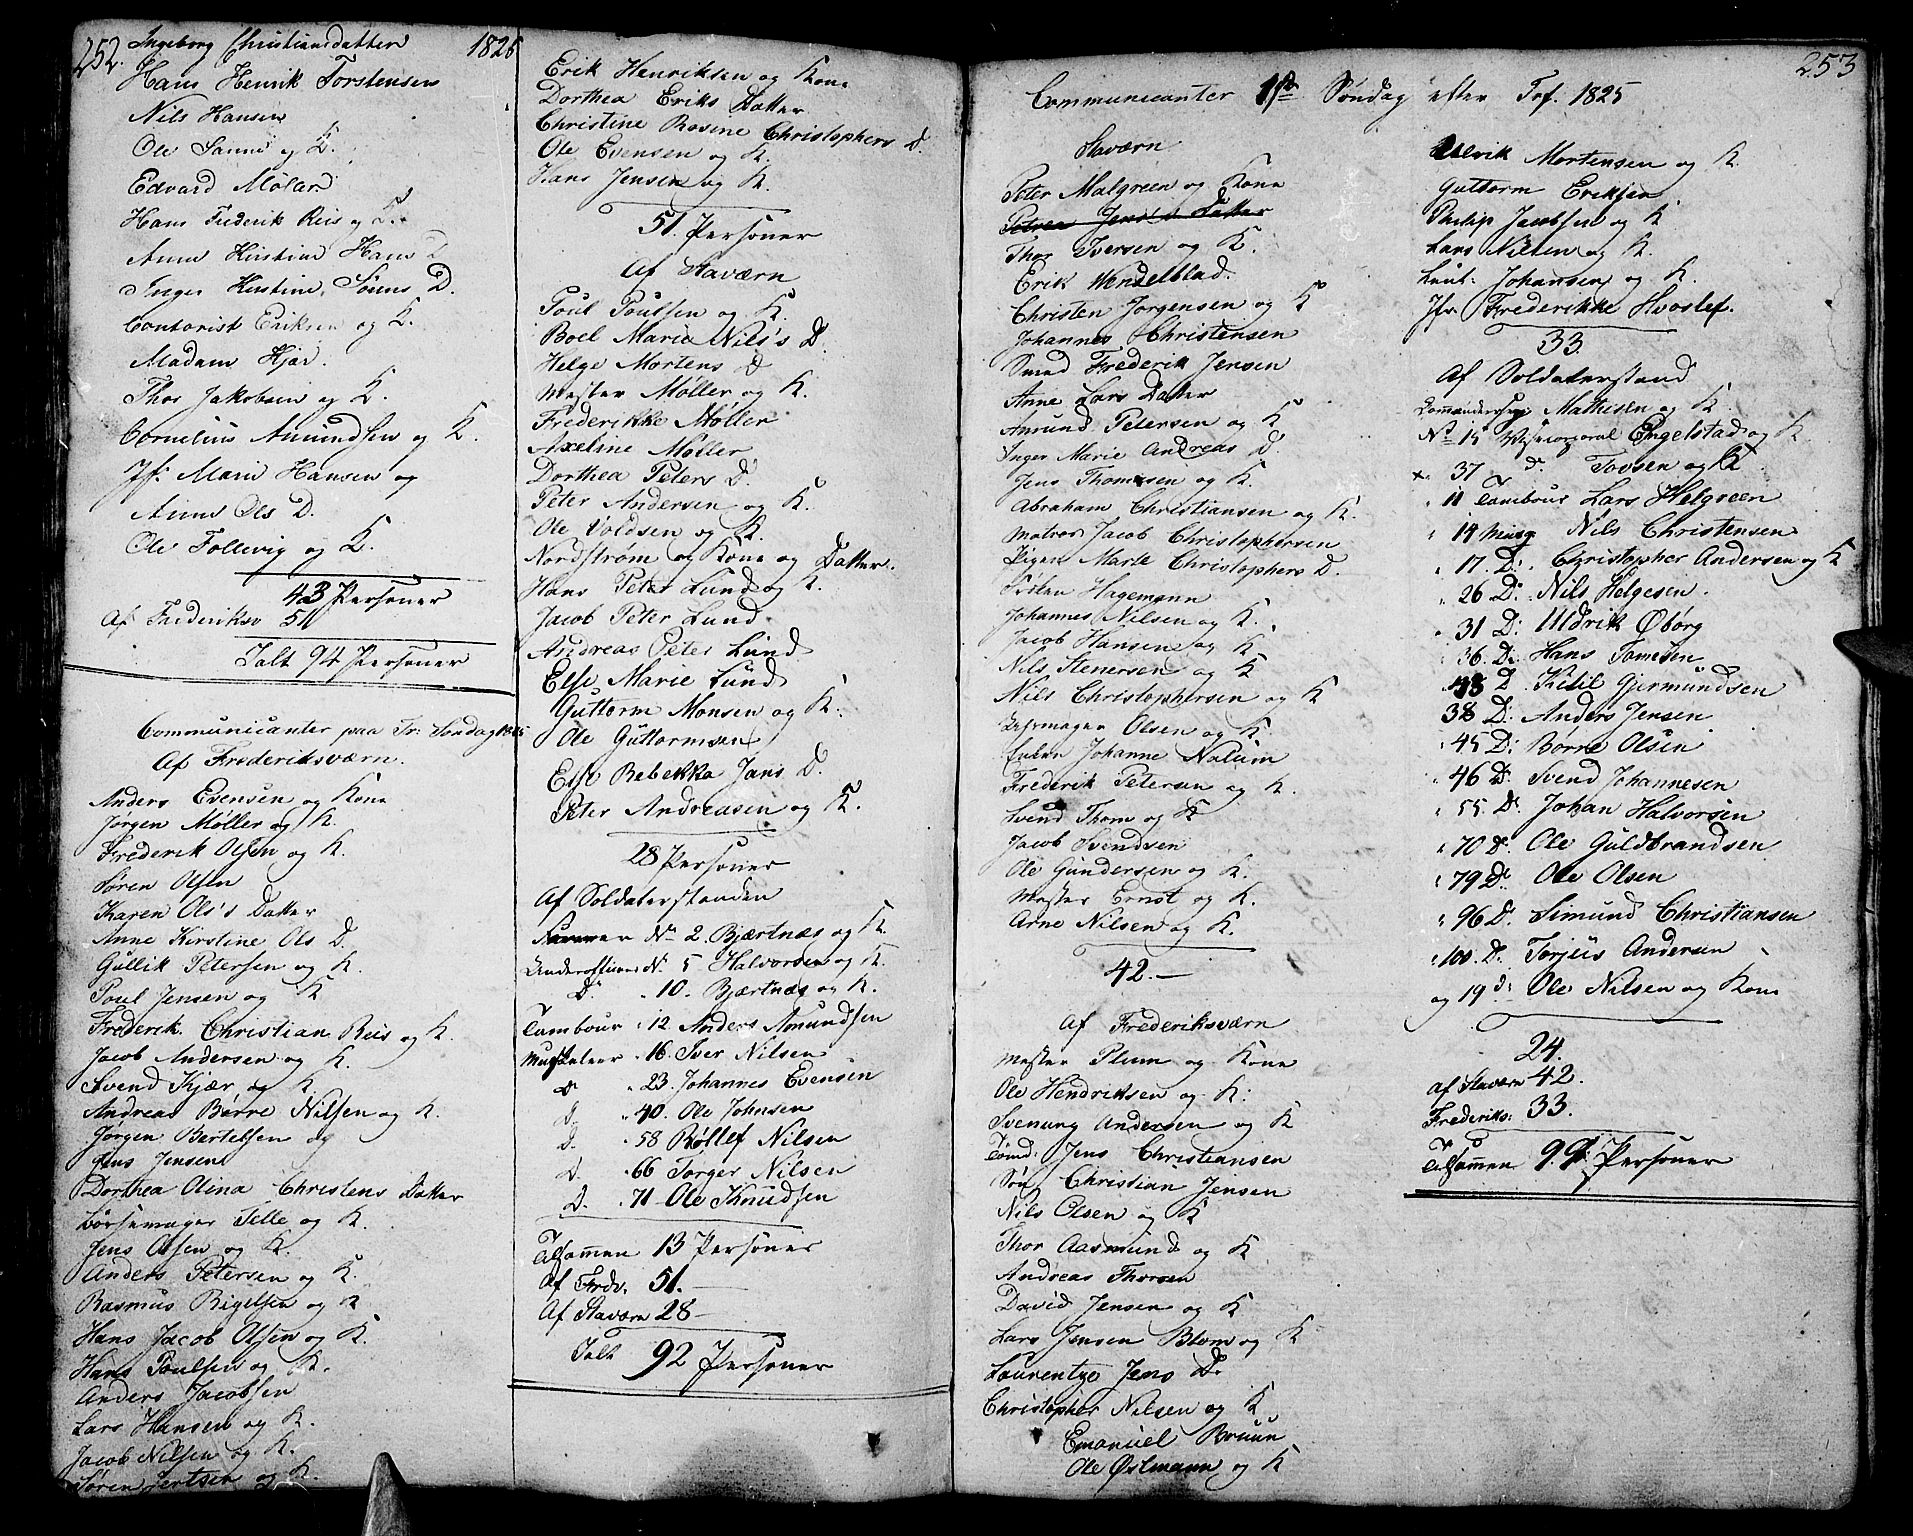 252. Ingeborg Christiansdatter 1825
Hans Henrik Torstensen
Nils Hansen
Ole Sanne og K.
Edvard Møler
Hans Frederik Reis og K.
Anne Kirstine Hans D
Inger Kirstine Sørens D.
Contorist Eriksen og K.
Madam Kjær.
Thor Jakobsen og K.
Cornelius Amundsen og K.
Jfr. Marie Hansen og
Anne Ols D.
Ole Follevig og K.
43 Personer
Af Frederiksv 51
Ialt 94 Personer
Communicanter paa Tr: Søndag 1825
Af Frederiksværn.
Anders Evensen og Kone
Jørgen Møller og K.
Frederik Olsen og K.
Søren Olsen
Karen Ols's Datter
Anne Kirstine Ols D.
Gullik Petersen og K.
Poul Jensen og K
Frederik Christian Reis og K.
Jacob Andersen og K.
Svend Kjær og K
Andreas Børre Nilsen og K.
Jørgen Bertelsen og
Jens Jensen
Dorthea Olina Christens Datter
Børsemager Telle og K.
Jens Olsen og K.
Anders Petersen og K.
Rasmus Bigelsen og K
Hans Jacob Olsen og K.
Hans Poulsen og K.
Anders Jacobsen
Lars Hansen og K.
Jacob Nilsen og K.
Søren Bertsen og K.
Erik Henriksen og Kone
Dorthea Eriks Datter
Christine Rosine Christophers D.
Ole Evensen og K.
Hans Jensen og K.
51. Personer
Af Staværn
Poul Poulsen og K.
Boel Marie Nils's D.
Helge Mortens D
Mester Møller og K.
Frederikke Møller
Axeline Møller
Dorthea Peters D.
Peter Andersen og K.
Ole Voldsen og K.
Nordstrøm og Kone og Datter.
Hans Peter Lund og K.
Jacob Peter Lund
Andreas Peter Lund
Else Marie Lund
Guttorm Monsen og K.
Ole Guttormsen
Else Rebekka Jans D.
Peter Andreasen og K.
28 Personer
Af Soldaterstanden
No 2. Bjærtnæs og K.
Underofficeer No. 5 Halvorsen og K.
Do " 10. Bjærtnæs og K.
Tambour " 12 Anders Amundsen
Musketeer " 16. Iver Nilsen
D " 23. Johannes Evensen
D " 40. Ole Johnsen
D. " 58 Røllef Nilsen
D " 66 Torger Nilsen
D. " 71 Ole Knudsen
Tilsammen 13 Personer
Af Frdv. 51.
Af Staværn 28
Ialt 92 Personer
253
Communicanter 1ste Søndag efter Tref. 1825
Staværn
Peter Malgreen og Kone
Petrea Jens's Datter
Thor Iversen og K.
Erik Wendelblad.
Christen Jørgensen og K
Johannes Christensen
Smed Frederik Jensen
Anne Lars Datter
Amund Petersen og K
Inger Marie Andreas D.
Jens Thomesen og K.
Abraham Christiansen og K.
Matros Jacob Christophersen
Pigen Marte Christophers D.
Hagemann
Johannes Nilsen og K.
Jacob Hansen og K
Nils Stenersen og K
Nils Christophersen og K
Olsen og K
Enken Johanne Nalum
Frederik Petersen og K.
Svend Thom og K
Jacob Svendsen
Ole Gundersen og K.
Mester Ernst og K.
Arne Nilsen og K.
42.
Af Frederiksværn
Mester Plum og Kone
Ole Hendriksen og K.
Svenung Andersen og K
Tømd: Jens Christiansen
Søn Christian Jensen
Nils Olsen og K
Thor Aasmund og K
Andreas Thorsen
David Jensen og K
Lars Jensen Blom og K
Laurentze Jens Dr
Christopher Nilsen og K
Emanuel Bruun
Ole Østmann og K
Ulrik Mortensen og K.
Guttorm Eriksen
Philip Jacobsen og K
Lars Nilsen og K.
Leut: Johansen og K.
Jfr. Frederikke Hvoslef.
33.
Af Soldaterstand
Commandersrg Mathisen og K.
No 15 Engelstad og K.
37 do. Tovsen og K.
" 11 Tambour Lars Helgreen
" 14 Musq Nils Christensen
" 17. D: Christopher Andersen og K
" 26 D: Nils Helgesen.
" 31 D: Uldrik Øborg
" 36. D: Hans Tomesen
" 48 D. Ketil Gjermundsen
38 D: Anders Jensen
" 45 D: Børre Olsen
" 46 D: Svend Johannesen
" 55 D: Johan Halvorsen
" 70 D. Ole Guldbrandsen
" 79 D. Ole Olsen
" 96 D. Simund Christiansen
" 100. D. Torjus Andersen
og 19 d: Ole Nilsen og Kone
24.
Af Staværn 42.
Frederiks: 33.
Tilsammen 99. Personer